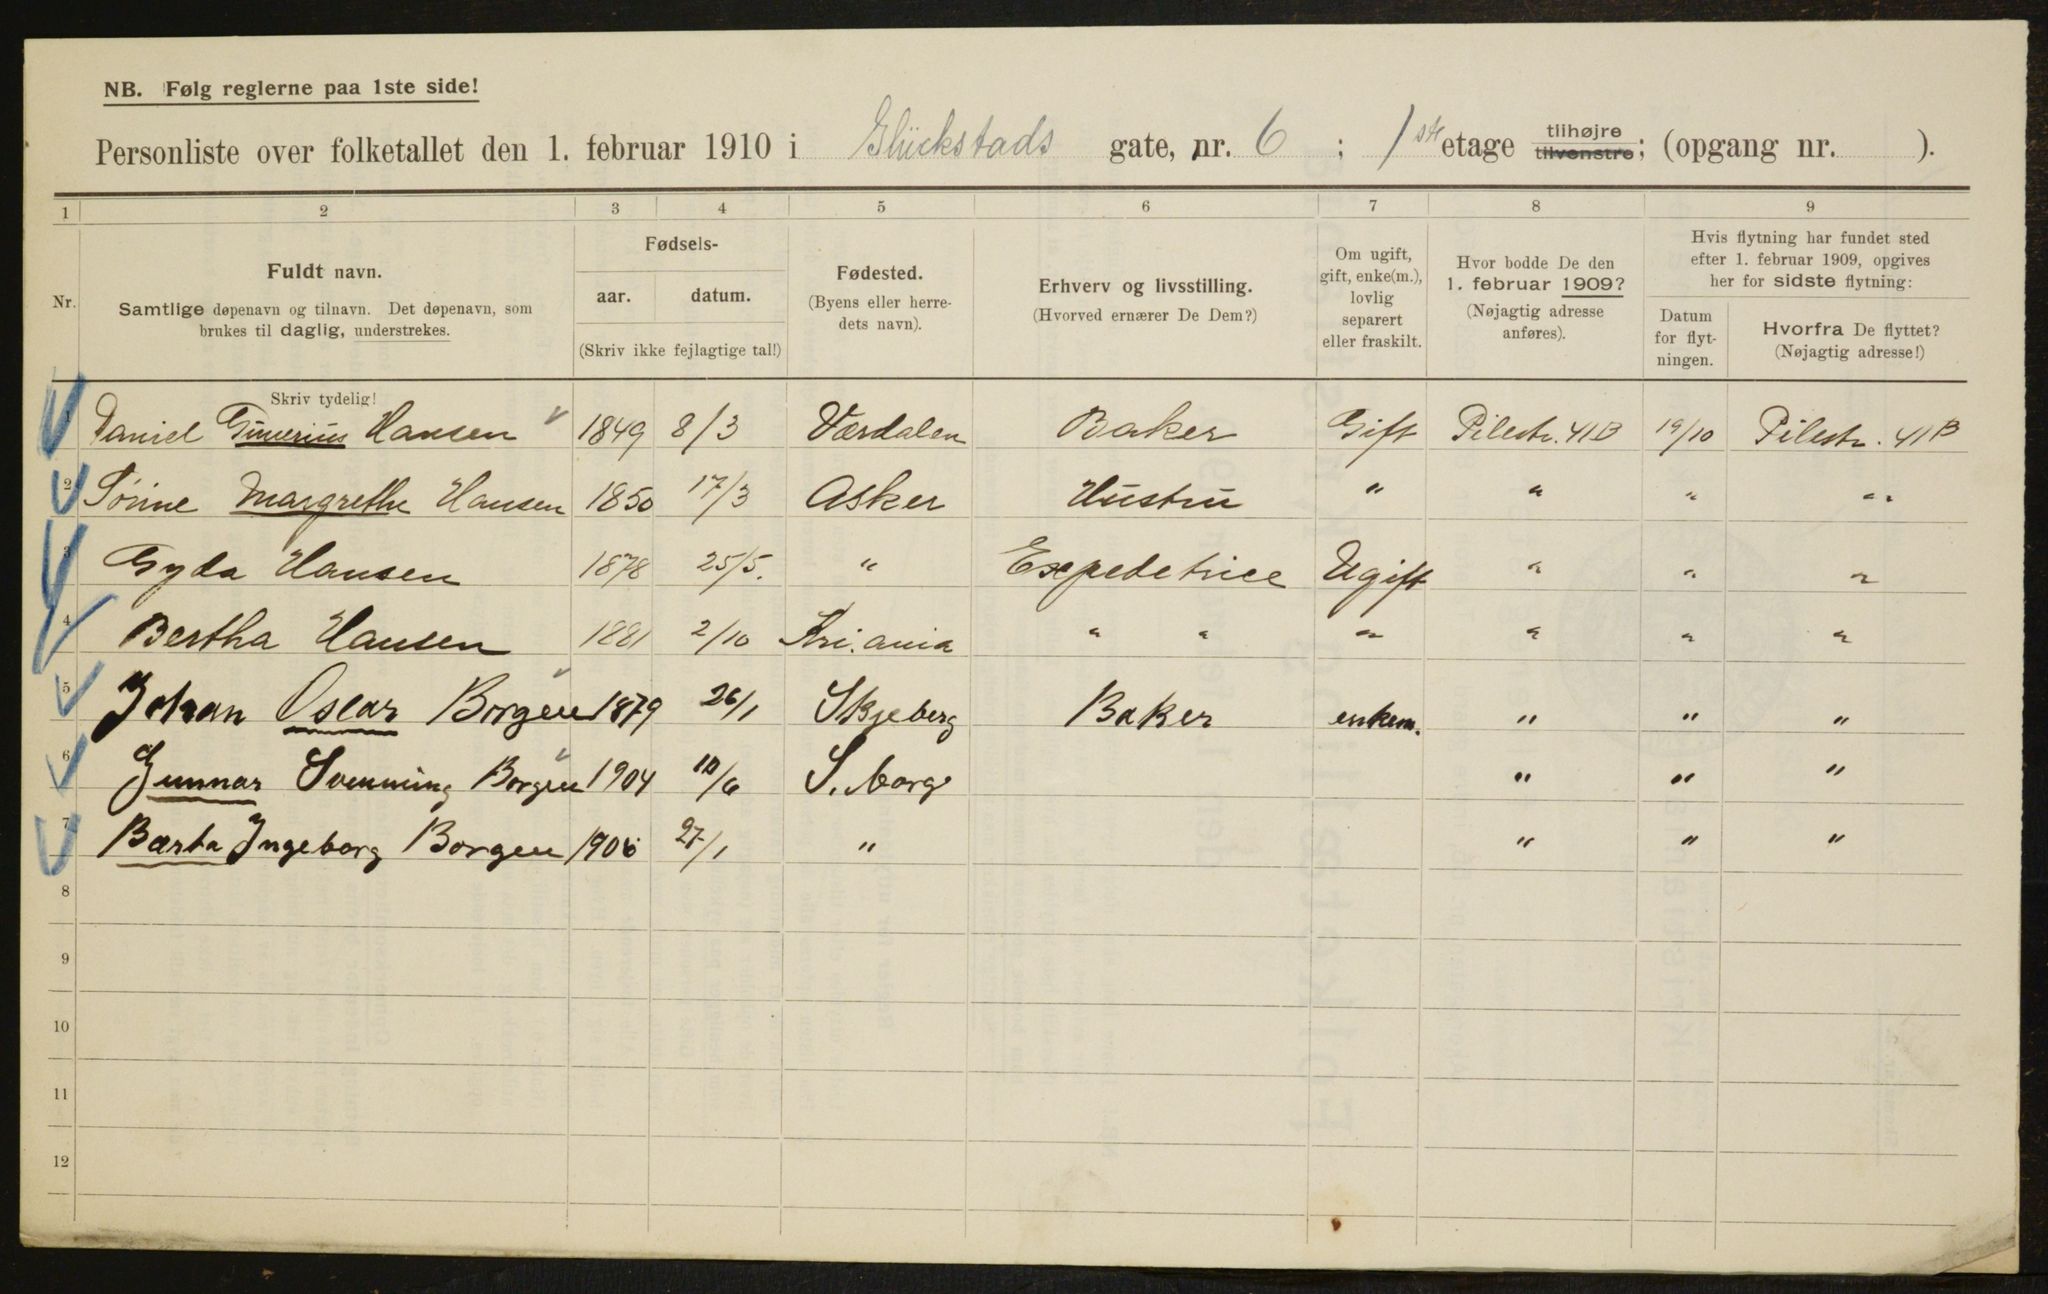 NB. Følg reglerne paa 1ste side!
Personliste over folketallet den 1. februar 1910 i Glückstads gate, nr. 6 ; 1ste etage tilhøjre tilvenstre; (opgang nr. ).
1 2 3 4 5 6 7 8 9
Nr.
Fuldt navn.
Samtlige døpenavn og tilnavn. Det døpenavn, som
brukes til daglig, understrekes.
Fødsels-
aar. datum.
(Skriv ikke fejlagtige tal!)
Fødested.
(Byens eller herre-
dets navn).
Erhverv og livsstilling.
(Hvorved ernærer De Dem?)
Om ugift,
gift, enke(m.),
lovlig
separert
eller fraskilt.
Hvor bodde De den
1. februar 1909?
(Nøjagtig adresse
anføres).
Hvis flytning har fundet sted
efter 1. februar 1909, opgives
her for sidste flytning:
Datum
for flyt-
ningen.
Hvorfra De flyttet?
(Nøjagtig adresse!)
Skriv tydelig!
1 Daniel Hansen 1849 8/3 Værdalen Baker Gift Pilestr. 41B 19/10 Pilestr. 41B
2 Margrethe Hansen 1850 17/3 Asker Hustru " " " "
3 Gyda Hansen 1878 25/5. " Expedetrice Ugift " " "
4 Bertha Hansen 1881 2/10 Kri.ania " " " " " "
5 Johan Oscar Borgen 1879 26/1 Skjeberg Baker enkem. " " "
6 Gunnar Svenning Borgen 1904 10/6 S.borg " " "
7 Bærta Ingeborg Borgen 1906 27/1 " " " "
8
9
10
11
12